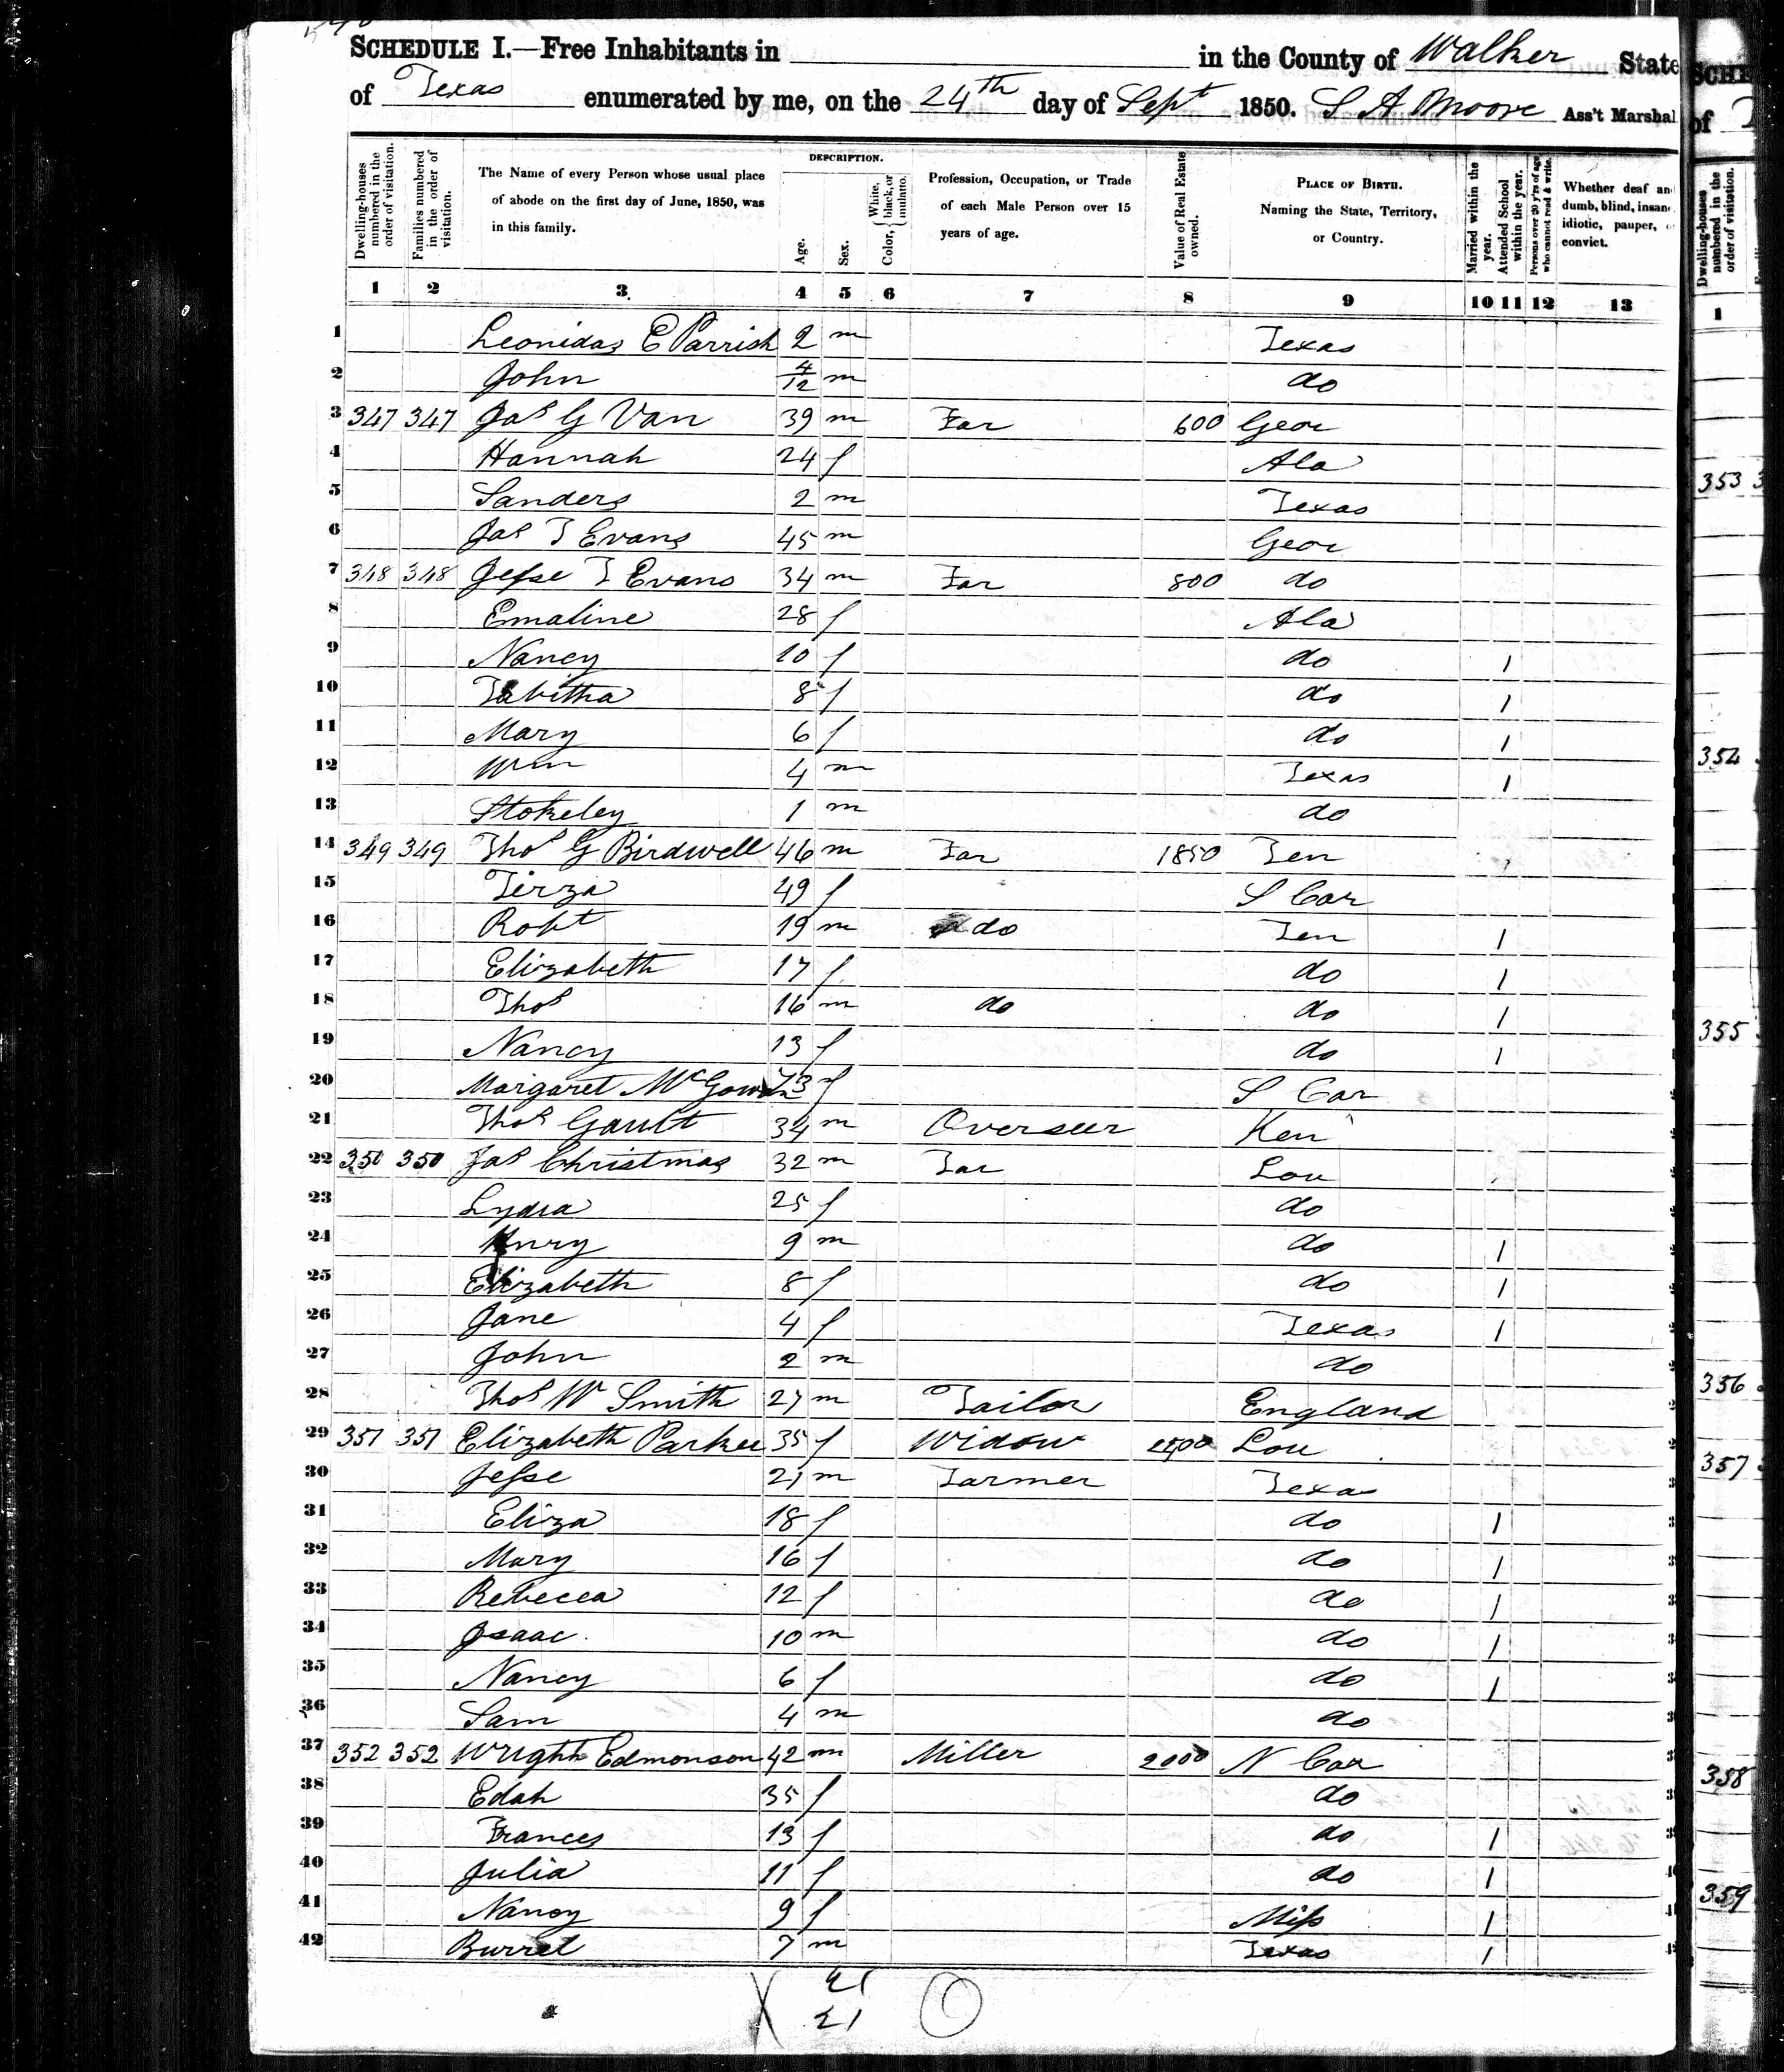 SCHEDULE I.—Free Inhabitants in in the County of Walker State
of Texas enumerated by me, on the 24th day of Sept 1850. S A Moore Ass't Marshal
Dwelling-houses numbered in the order of visitation.
Families numbered in the order of visitation.
The Name of every Person whose usual place of abode on the first day of June, 1850, was in this family.
DESCRIPTION.
Age.
Sex.
Color, White, black, or mulatto.
Profession, Occupation, or Trade of each Male Person over 15 years of age.
Value of Real Estate owned.
PLACE OF BIRTH. Naming the State, Territory, or Country.
Married within the year.
Attended School within the year.
Persons over 20 y'rs of age who cannot read & write.
Whether deaf and dumb, blind, insane, idiotic, pauper, convict.
1 2 3 4 5 6 7 8 9 10 11 12 13
1 Leonidas E Parrish 2 m Texas
2 John 4/12 m do
3 347 347 Jas G Van 39 m Far 600 Geor
4 Hannah 24 f Ala
5 Sanders 2 m Texas
6 Jas T Evans 45 m Geor
7 348 348 Jesse T Evans 34 m Far 800 do
8 Emaline 28 f Ala
9 Nancy 10 f do 1
10 Tabitha 8 f do 1
11 Mary 6 f do 1
12 Wm 4 m Texas 1
13 Stokeley 1 m do
14 349 349 Thos G Birdwell 46 m Far 1850 Ten
15 Tirza 49 f S Car
16 Robt 19 m do Ten 1
17 Elizabeth 17 f do 1
18 Thos 16 m do do 1
19 Nancy 13 f do 1
20 Margaret McGowan 73 f S Car
21 Thos Gault 34 m Overseer Ken
22 350 350 Jas Christmas 32 m Far Lou
23 Lydia 25 f do
24 Henry 9 m do 1
25 Elizabeth 8 f do 1
26 Jane 4 f Texas 1
27 John 2 m do
28 Thos W Smith 27 m Tailor England
29 351 351 Elizabeth Parker 35 f Widow Lou
30 Jesse 21 m Farmer Texas
31 Eliza 18 f do 1
32 Mary 16 f do 1
33 Rebecca 12 f do 1
34 Isaac 10 m do 1
35 Nancy 6 f do 1
36 Sam 4 m do
37 352 352 Wright Edmonson 42 m Miller 2000 N Car
38 Edah 35 f do
39 Frances 13 f do 1
40 Julia 11 f do 1
41 Nancy 9 f Miss 1
42 Burrel 7 m Texas 1
21
21
SCHE
of
Dwelling-houses numbered in the order of visitation.
1
353
354
355
356
357
358
359